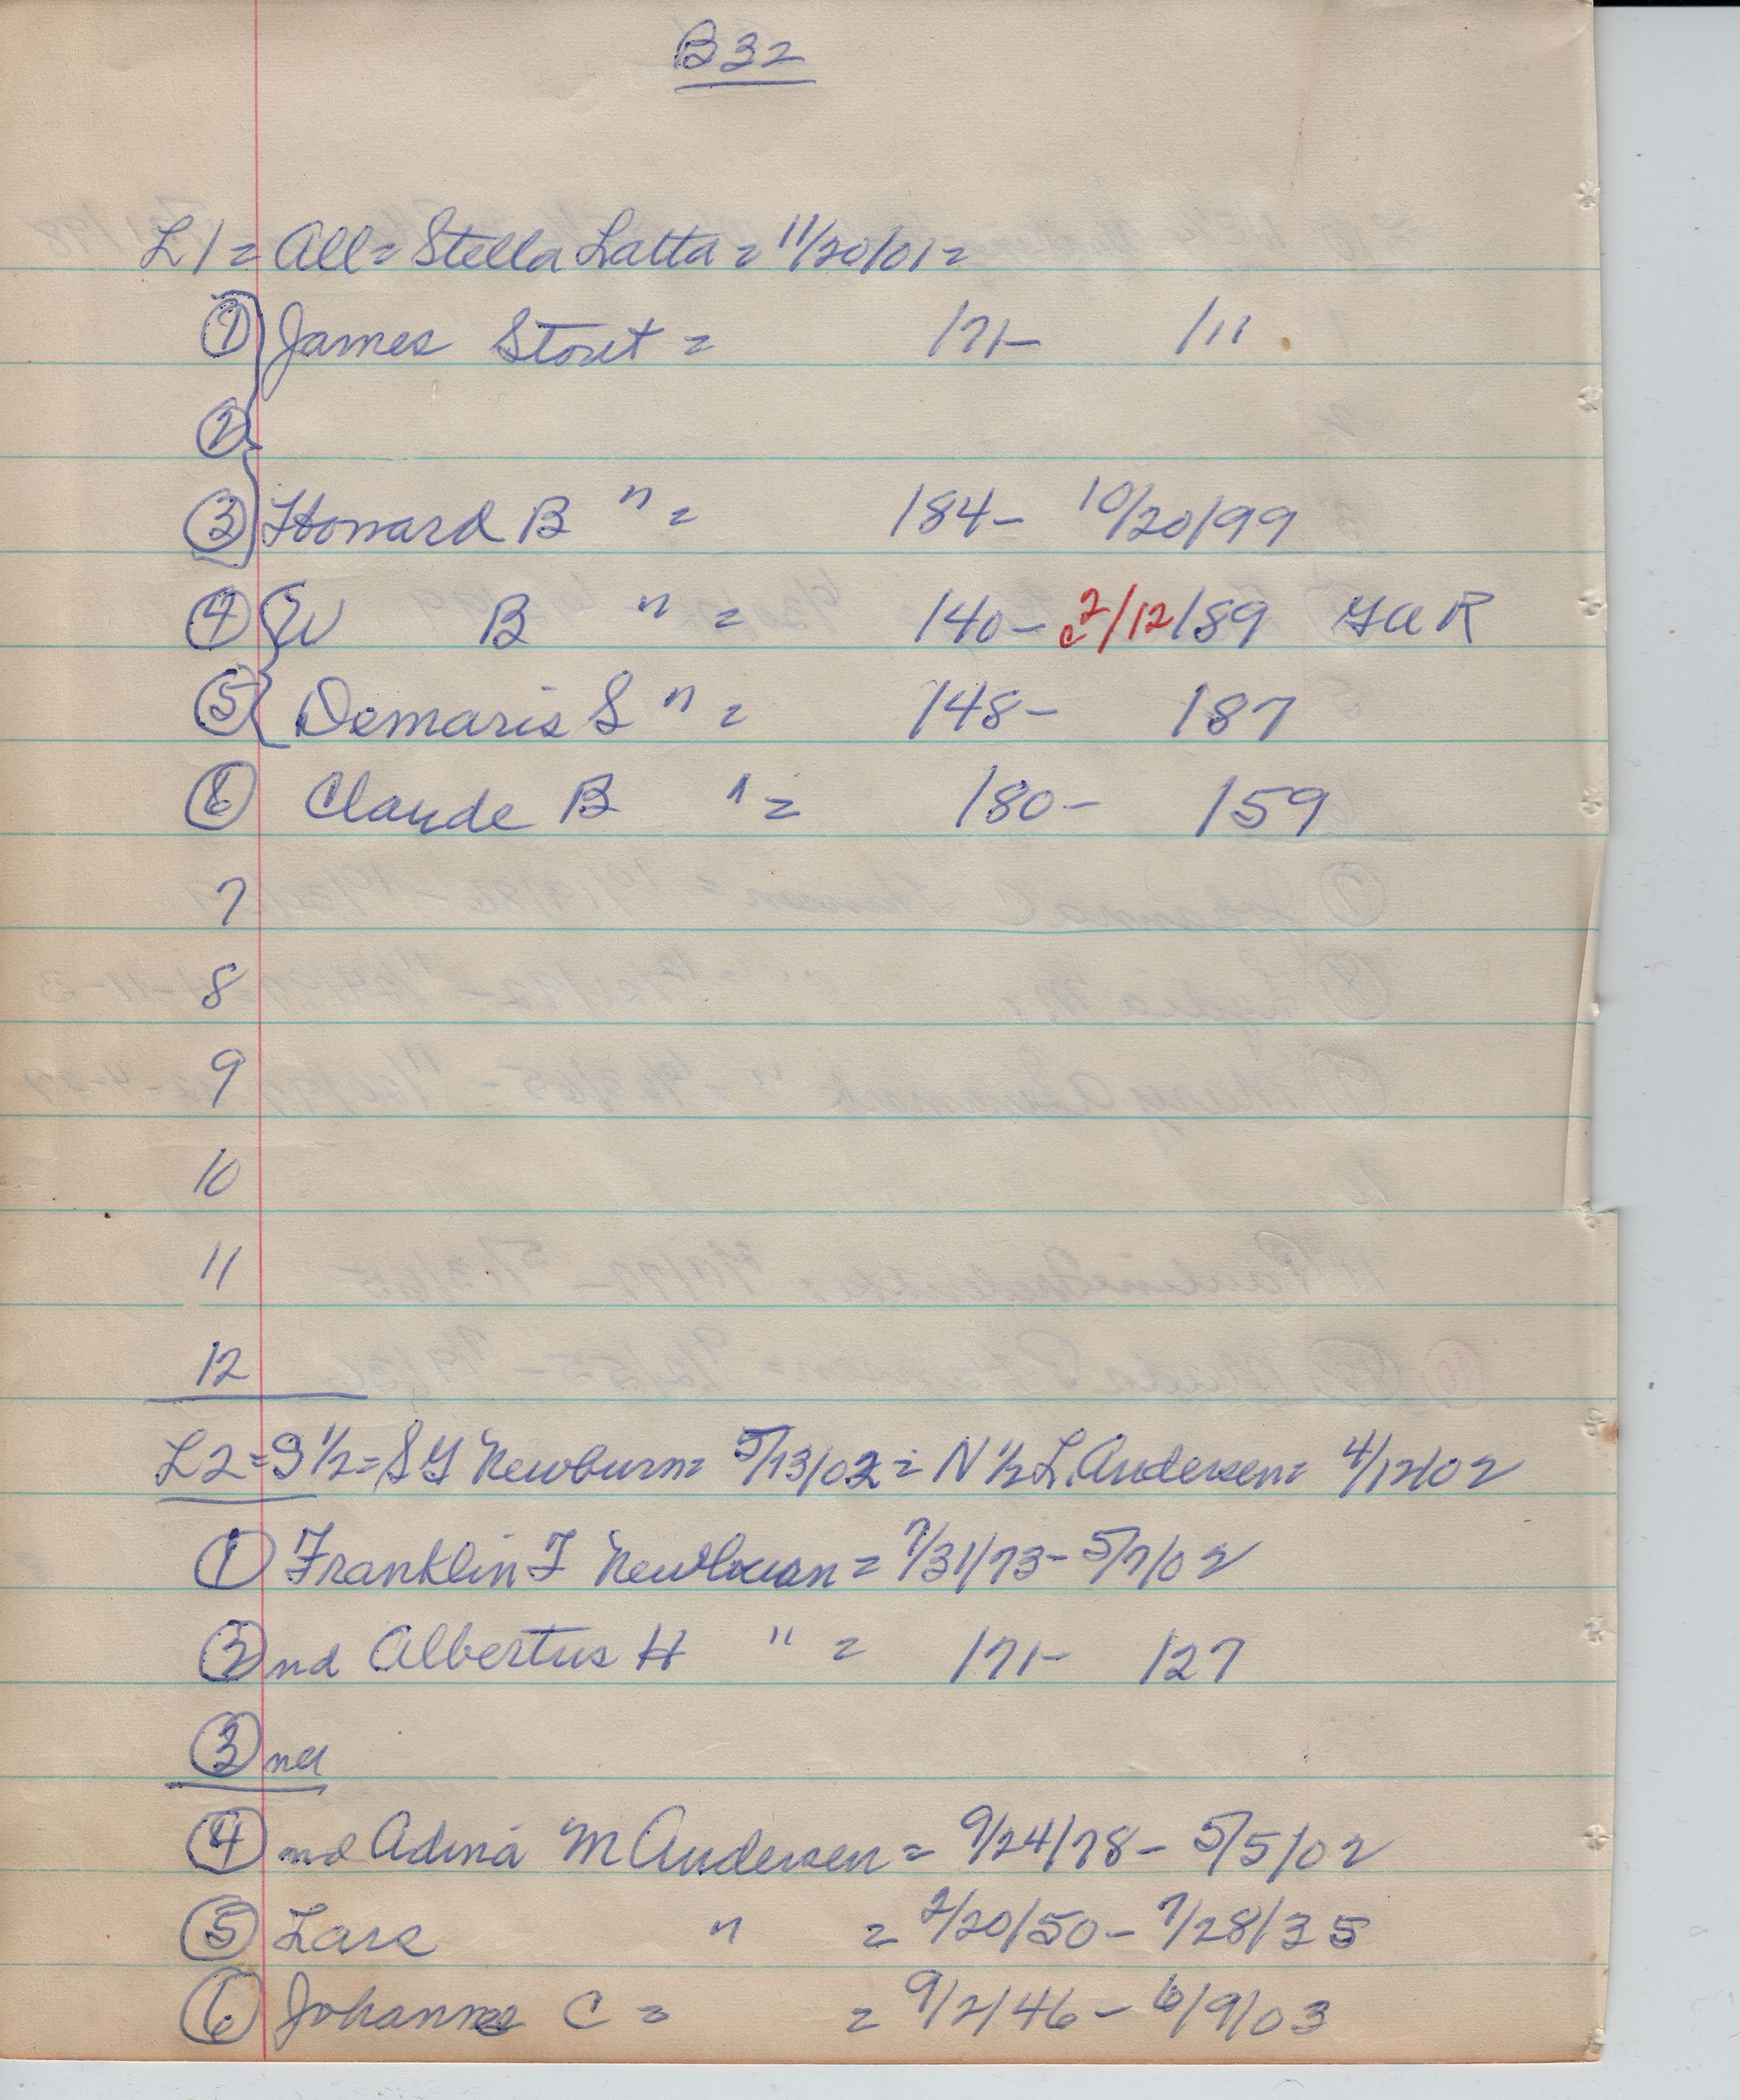 B32
L1 = All = Stella Latta = 11/20/01 =
① James Stout = /71- /11
②
③ Howard B " = /84- 10/20/99
④ W B " = /40- 2/12/89 GAR
⑤ Demaris S " = /48- /87
⑥ Claude B " = /80- /59
7
8
9
10
11
12
L2 = S 1/2 = S G Newburn = 5/13/02 = N 1/2 L. Andersen = 4/12/02
① Franklin F = 7/31/73 - 5/7/02
② nd Albertus H " = /71- /27
③ nd
④ nd Adina M Andersen = 9/24/78 - 5/5/02
⑤ Lars " = 2/20/50 - 7/28/35
⑥ C = = 9/2/46 - 6/9/03